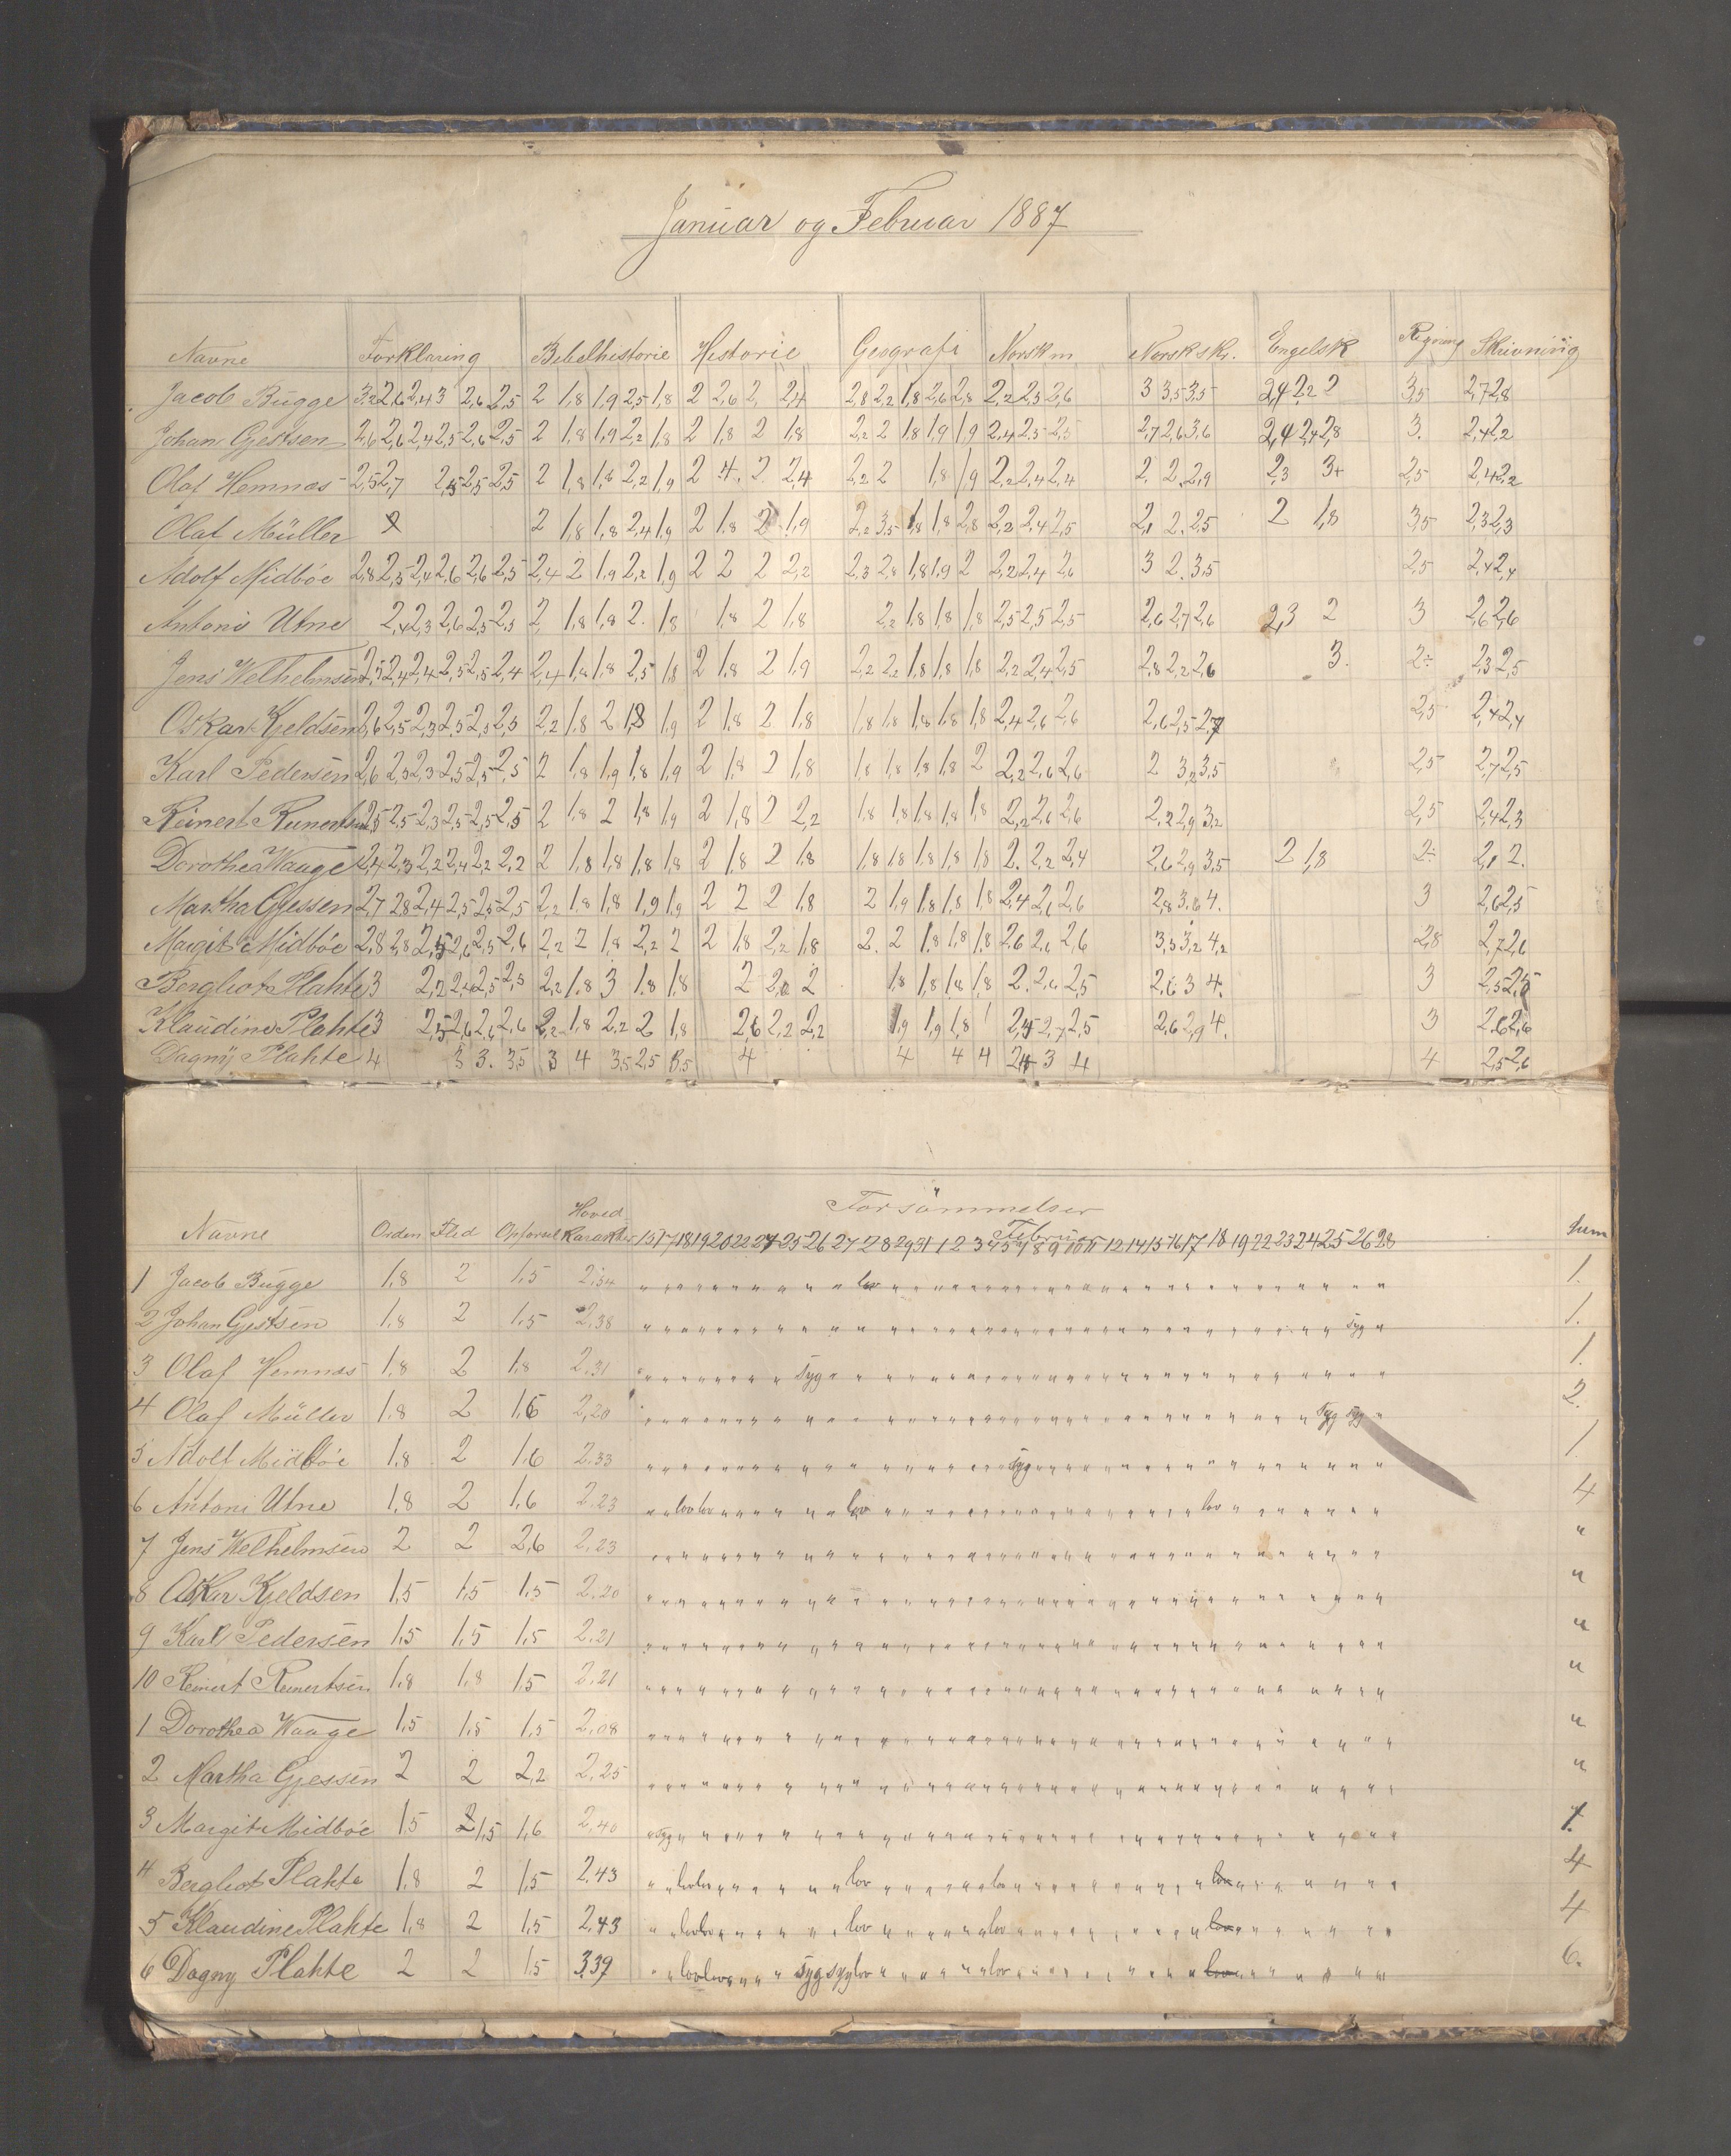 Januar og Februar 1887
Navne Forklaring Bibelhistorie Historie Geografi Norsk m Norsk skr. Engelsk Regning Skrivning
Jacob Bugge 3,2 2,6 2,4 3 2,6 2,5 2 1,8 1,9 2,5 1,8 2 2,6 2, 2,4 2,8 2,2 1,8 2,6 2,8 2,2 2,3 2,6 3 3,5 3,5 2,4 2,2 2 3,5 2,7 2,8
Johan Gjertsen 2,6 2,6 2,4 2,5 2,6 2,5 2 1,8 1,9 2,2 1,8 2 1,8 2 1,8 2,2 2 1,8 1,9 1,9 2,4 2,5 2,5 2,7 2,6 3,6 2,4 2,4 2,8 3. 2,4 2,2
Olaf Hemnæs 2,5 2,7 2,5 2,5 2,5 2 1,8 1,8 2,2 1,9 2 4. 2. 2,4 2,2 2 1,8 1,9 2,2 2,4 2,4 2. 2. 2,9 2,3 3+ 2,5 2,4 2,2
Olaf Müller 2 1,8 1,8 2,4 1,9 2 1,8 2 1,9 2,2 3,5 1,8 1,8 2,8 2,2 2,4 2,5 2,1 2. 2,5 2 1,8 3,5 2,3 2,3
Adolf Midböe 2,8 2,5 2,4 2,6 2,6 2,5 2,4 2 1,9 2,2 1,9 2 2 2 2,2 2,3 2,8 1,8 1,9 2 2,2 2,4 2,6 3 2. 3,5 2,5 2,4 2,4
Antoni Utne 2,4 2,3 2,6 2,5 2,5 2, 1,8 1,8 2. 1,8 1,8 2 1,8 2,2 1,8 1,8 1,8 2,5 2,5 2,5 2,6 2,7 2,6 2,3 2 3 2,6 2,6
Jens Welhelmsen 2,5 2,4 2,4 2,5 2,5 2,4 2,4 1,8 1,8 2,5 1,8 2 1,8 2 1,9 2,2 2,2 1,8 1,8 1,8 2,2 2,4 2,5 2,8 2,2 2,6 3. 2÷ 2,3 2,5
Oskar Kjeldsen 2,6 2,5 2,3 2,5 2,5 2,5 2,2 1,8 2 1,8 1,9 2 1,8 2 1,8 1,8 1,8 1,8 1,8 1,8 2,4 2,6 2,6 2,6 2,5 2,7 2,5 2,4 2,4
Karl Pedersen 2,6 2,5 2,3 2,5 2,5 2,5 2 1,8 1,9 1,8 1,9 2 1,8 2 1,8 1,8 1,8 1,8 1,8 2 2,2 2,6 2,6 2 3,2 3,5 2,5 2,7 2,5
Reinert Reinertsen 2,5 2,5 2,3 2,5 2,5 2,5 2 1,8 2 1,8 1,9 2 1,8 2 2,2 1,8 1,8 1,8 1,8 1,8 2,2 2,6 2,6 2,2 2,9 3,2 2,5 2,4 2,3
Dorothea Waage 2,4 2,3 2,2 2,4 2,2 2,2 2 1,8 1,8 1,8 1,8 2 1,8 2 1,8 1,8 1,8 1,8 1,8 1,8 2. 2,2 2,4 2,6 2,9 3,5 2 1,8 2÷ 2,1 2.
Martha Gjessen 2,7 2,8 2,4 2,5 2,5 2,5 2,2 1,8 1,8 1,9 1,9 2 2 2 1,8 2 1,9 1,8 1,8 1,8 2,4 2,6 2,6 2,8 3,4 4. 3 2,6 2,5
Margit Midböe 2,8 2,8 2,5 2,6 2,5 2,6 2,2 2 1,8 2,2 2 2 1,8 2,2 1,8 2. 2 1,8 1,8 1,8 2,6 2,6 2,6 3,3 3,2 4,2 2,8 2,7 2,6
Bergliot Plahte 3 2,2 2,4 2,5 2,5 2,2 1,8 3 1,8 1,8 2 2,2 2 1,8 1,8 1,8 1,8 2. 2,6 2,5 2,6 3 4. 3 2,5 2,5
Klaudine Plahte 3 2,5 2,6 2,6 2,6 2,2 1,8 2,2 2 1,8 2,6 2,2 2,2 1,9 1,9 1,8 2,5 2,7 2,5 2,6 2,9 4. 3 2,6 2,6
Dagny Plahte 4 3 3. 3,5 3 4 3,5 2,5 3,5 4 4 4 4 2,4 3 4 4 2,5 2,6
Forsömmelser
Navne Orden Flid Opförsel Hoved Karakter Februar Sum
15 17 18 19 20 22 24 25 26 27 28 29 31 1 2 3 4 5 7 8 9 10 11 12 14 15 16 17 18 19 22 23 24 25 26 28
1 Jacob Bugge 1,8 2 1,5 2,54 lov 1.
2 Johan Gjertsen 1,8 2 1,5 2,38 syg 1.
3 Olaf Hemnæs 1,8 2 1,8 2,31 syg 1.
4 Olaf Müller 1,8 2 1,6 2,20 syg syg 2.
5 Adolf Midböe 1,8 2 1,6 2,33 syg 1
6 Antoni Utne 1,8 2 1,6 2,23 lov lov lov lov 4
7 Jens Welhelmsen 2 2 2,6 2,23 "
8 Oskar Kjeldsen 1,5 1,5 1,5 2,20 "
9 Karl Pedersen 1,5 1,5 1,5 2,21 "
10 Reinert Reinertsen 1,8 1,8 1,5 2,21 "
1 Dorothea Waage 1,5 1,5 1,5 2,08 "
2 Martha Gjessen 2 2 2,2 2,25 "
3 Margit Midböe 1,5 1,5 1,6 2,40 syg 1.
4 Bergliot Plahte 1,8 2 1,5 2,43 lov lov lov lov lov 4
5 Klaudine Plahte 1,8 2 1,5 2,43 lov lov lov lov lov 4
6 Dagny Plahte 2 2 1,5 3,39 lov lov syg syg lov lov lov 6.